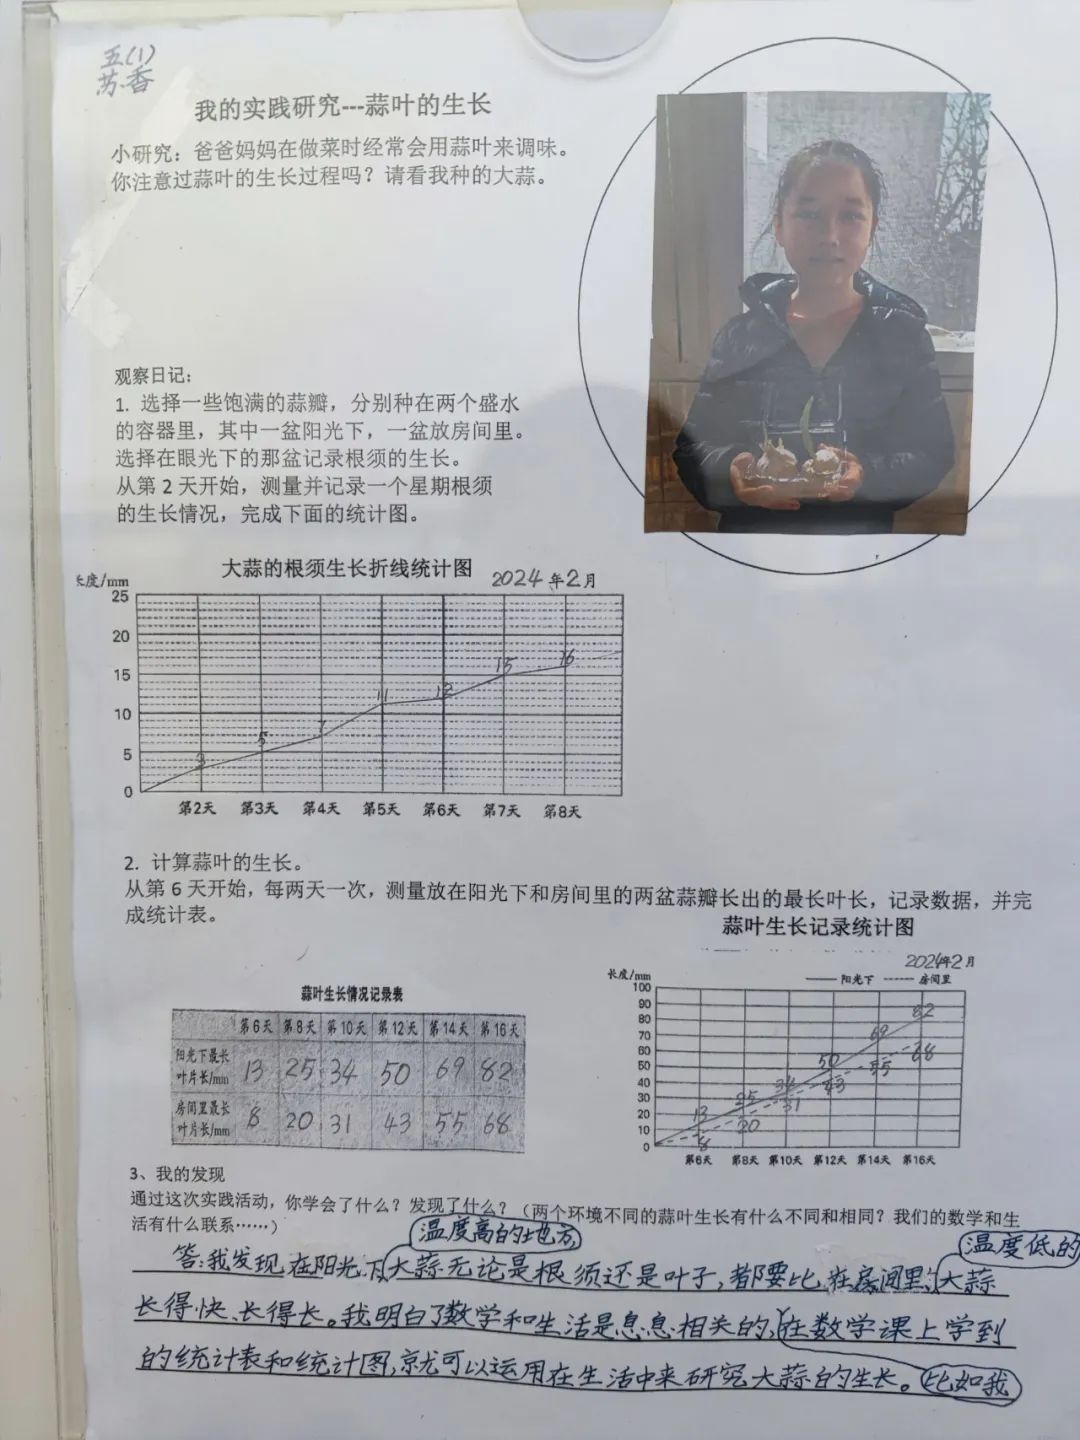 五(1)
苏香
我的实践研究---蒜叶的生长
小研究：爸爸妈妈在做菜时经常会用蒜叶来调味。
你注意过蒜叶的生长过程吗？请看我种的大蒜。
观察日记：
1. 选择一些饱满的蒜瓣，分别种在两个盛水
的容器里，其中一盆阳光下，一盆放房间里。
选择在眼光下的那盆记录根须的生长。
从第2天开始，测量并记录一个星期根须
的生长情况，完成下面的统计图。
大蒜的根须生长折线统计图 2024年2月
长度/mm
25
20
15
10
5
0
3 5 7 11 12 15 16
第2天 第3天 第4天 第5天 第6天 第7天 第8天
2. 计算蒜叶的生长。
从第6天开始，每两天一次，测量放在阳光下和房间里的两盆蒜瓣长出的最长叶长，记录数据，并完
成统计表。
蒜叶生长情况记录表
第6天 第8天 第10天 第12天 第14天 第16天
阳光下最长
叶片长/mm 13 25 34 50 69 82
房间里最长
叶片长/mm 8 20 31 43 55 68
蒜叶生长记录统计图
2024年2月
长度/mm
阳光下 房间里
100
90
80
70
60
50
40
30
20
10
0
13 25 34 50 69 82
8 20 31 43 55 68
第6天 第8天 第10天 第12天 第14天 第16天
3、我的发现
通过这次实践活动，你学会了什么？发现了什么？（两个环境不同的蒜叶生长有什么不同和相同？我们的数学和生
活有什么联系……）
温度高的地方,
温度低的
答:我发现在阳光下,大蒜无论是根须还是叶子,都要比在房间里,大蒜
长得快、长得长。我明白了数学和生活是息息相关的,在数学课上学到
的统计表和统计图,就可以运用在生活中来研究大蒜的生长。
比如我